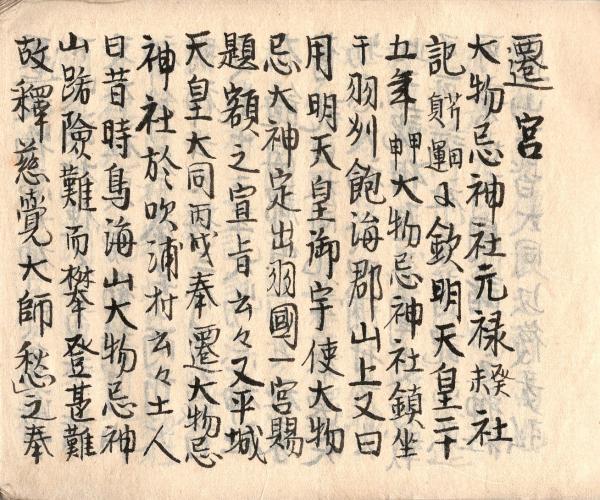 遷宮
大物忌神社元禄癸未社
記芹田眞運に欽明天皇二十
五年甲申大物忌神社鎮坐
于羽州飽海郡山上又曰
用明天皇御宇使大物
忌大神定出羽國一宮賜
題額之宣旨云々又平城
天皇大同丙戌奉遷大物忌
神社於吹浦村云々土人
曰昔時鳥海山大物忌神
山路險難而攀登甚難
故釋慈覺大師愁之奉